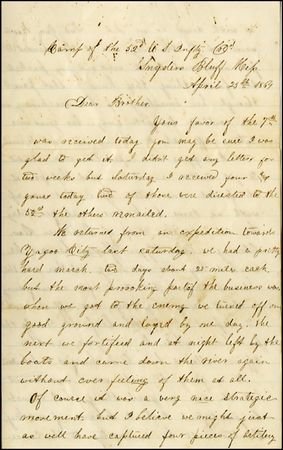 Camp of the 52d U S Infty Cold
Snyders Bluff Miss
April 25th 1864
Dear Brother
Your favor of the 7th
was received today you may be sure I was
glad to get it. I didn't get any letters for
two weeks but Saturday I received four &
yours today, two of those were directed to the
52d the others remailed.
We returned from an expedition towards
Yazoo City last saturday. we had a pretty
hard march two days about 25 miles each
but the most provoking part of the business was
when we got to the enemy we turned off on
good ground and layed by one day. the
next we fortified and at night left by the
boats and came down the river again
without ever feeling of them at all.
Of course it was a very nice strategic
movement. but I believe we might just
as well have captured four pieces of artillery